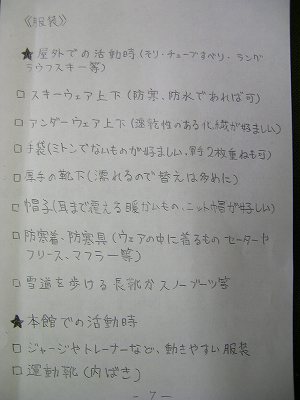 《服装》
★屋外での活動時(そり・チューブすべり・ラング
ラウフスキー等)
□ スキーウェア上下(防寒、防水であれば可)
□ アンダーウェア上下(速乾性のある化繊が好ましい)
□ 手袋(ミトンでないものが好ましい、軍手2枚重ねも可)
□ 厚手の靴下(濡れるので替えは多めに)
□ 帽子(耳まで覆える暖かいもの、ニット帽が好しい)
□ 防寒着、防寒具(ウェアの中に着るもの セーターや
フリース、マフラー等)
□ 雪道を歩ける長靴かスノーブーツ等
★本館での活動時
□ ジャージやトレーナーなど、動きやすい服装
□ 運動靴(内ばき)
- 7 -